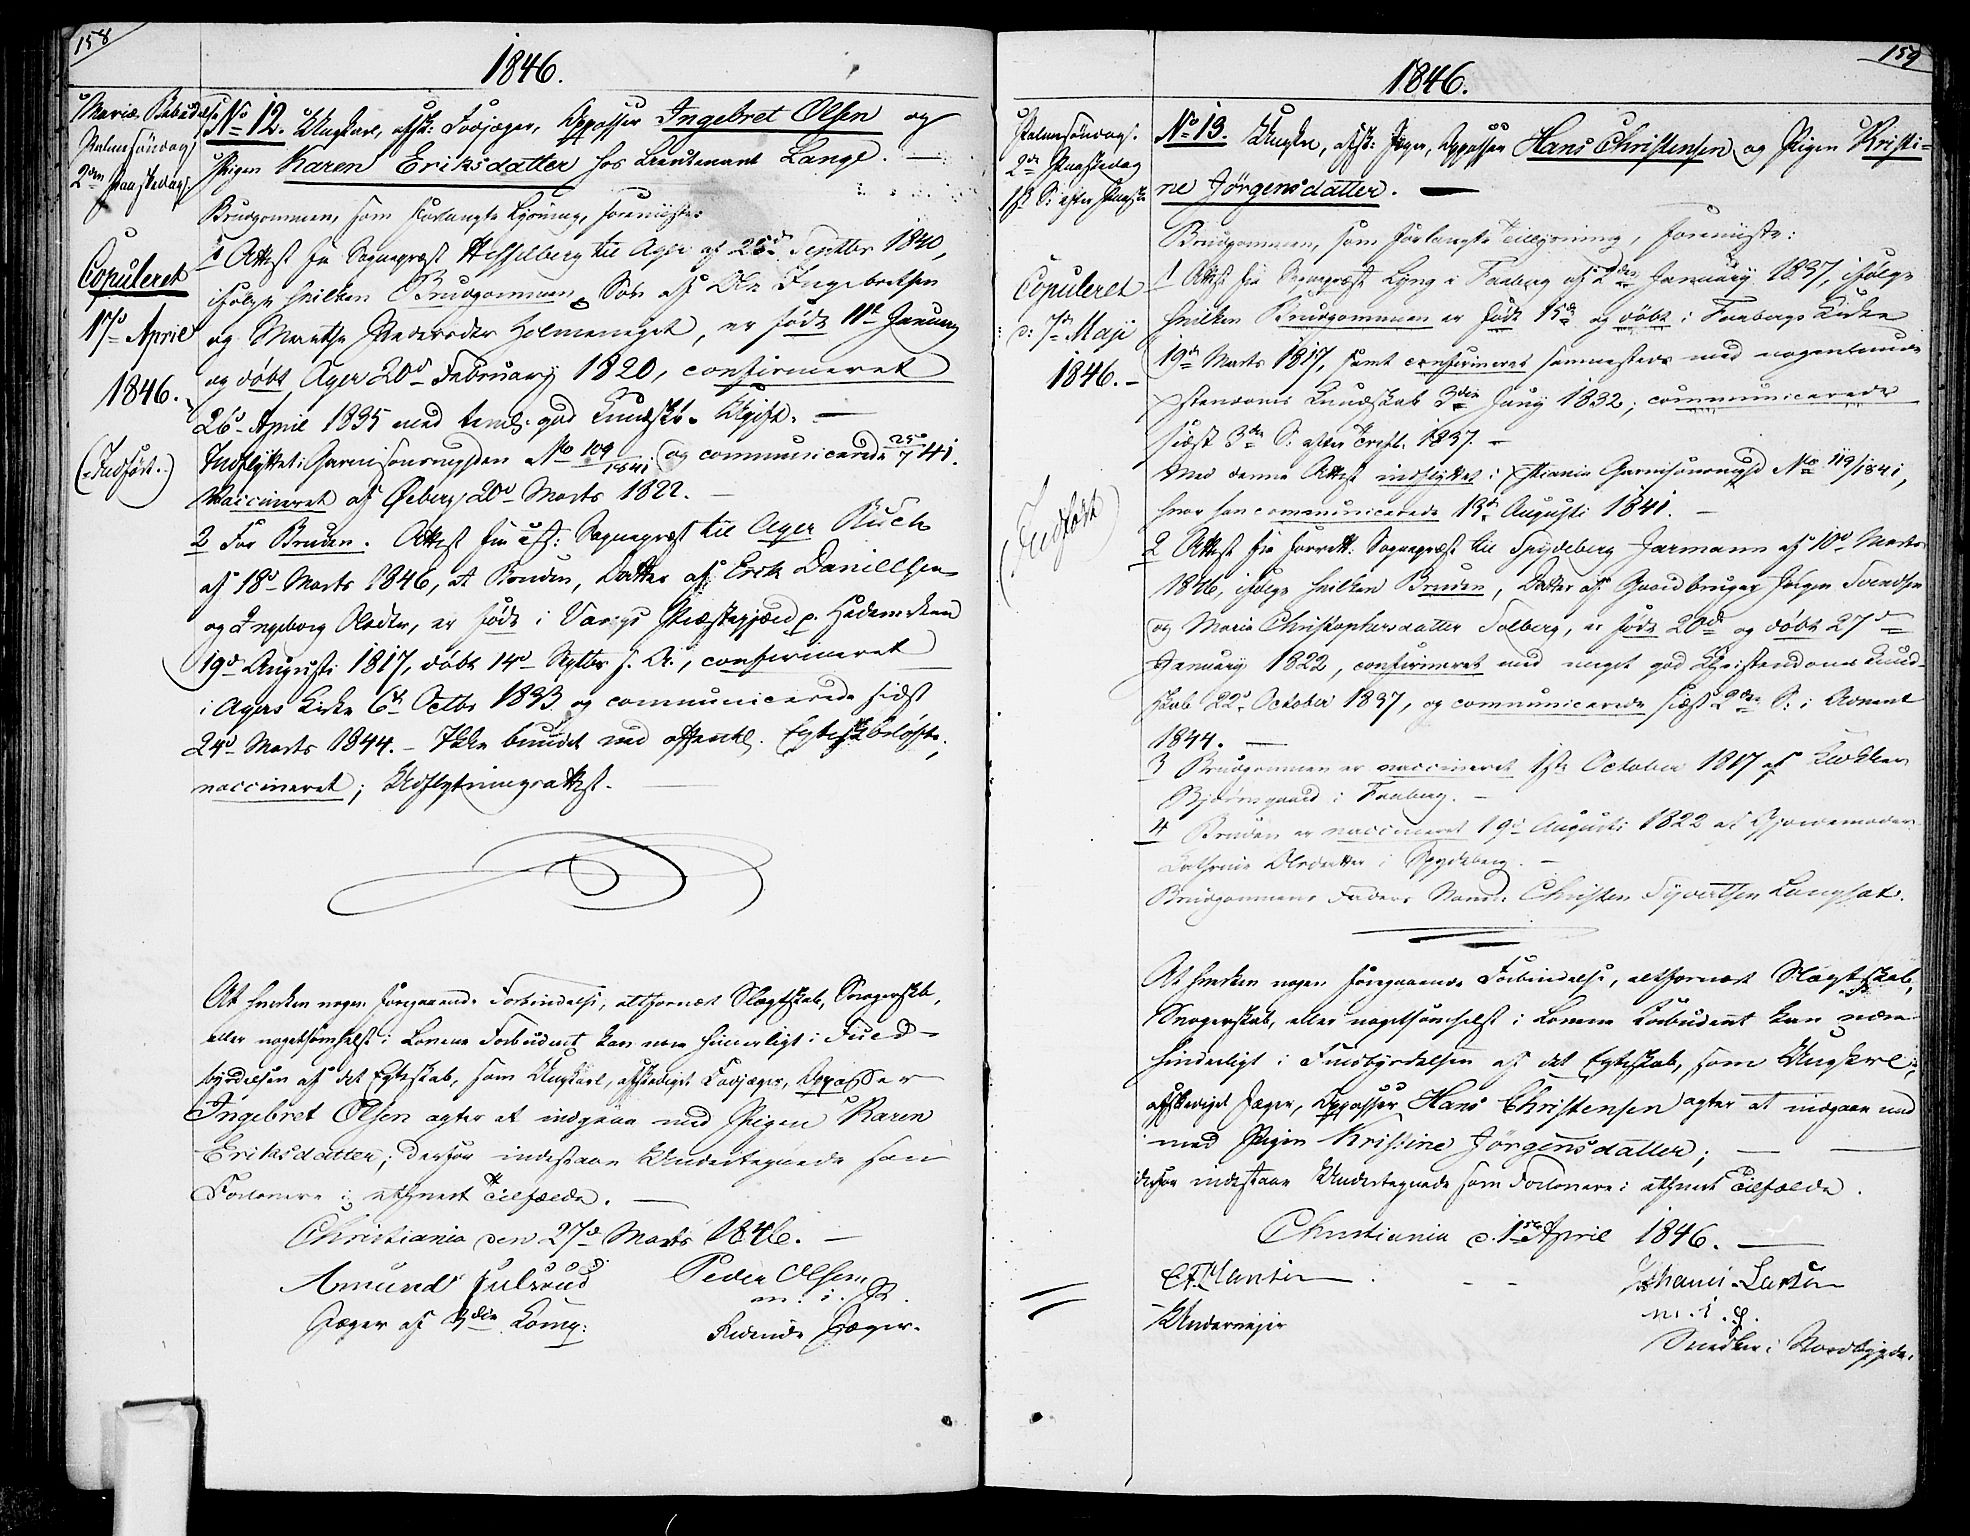 158
1846.
Mariæ Bebudelse
Palmesöndag
2den Paaskedag.
Copuleret
17d April
1846.
(Indført.)
No 12. Ungkarl, afsk: Fodjæger, Oppasser Ingebret Olsen og
Pigen Karen Eriksdatter hos Lieutenant Lange. —
Brudgommen, som forlangte Lysning, foreviiste:
1 Attest fra Sognepræst Hesselberg til Ager af 25d Septbr 1840,
ifølge hvilken Brudgommen, Søn af Ole Ingebretsen
og Marthe Andersdtr Holmeneget, er født 11d January
og døbt Ager 20d February 1820, confirmeret
26d April 1835 med temlig god Kundskb. Ugift. —
Indflyttet i Garnisonsmgden No 109/1841 og communicerede 25/7 41.
Vaccineret af Øeberg 20d Marts 1822. —
2 For Bruden. Attest fra Sognepræst til Ager Ruch
af 18d Marts 1846, at Bruden, Datter af Erik Danillsen
og Ingeborg Olsdtr, er født i Vangs Præstegjæld p. Hedemarken
19d Augusti 1817, døbt 14d Septbr s. A., confirmeret
i Agers Kirke 6d Octbr 1833 og communicerede sidst
24d Marts 1844. — Ikke bundet ved offentl. Egteskabsløfte;
vaccineret; Udflytningsattest. —
At hverken nogen foregaaende Forbindelse, altfornært Slægtskab, Svogerskab,
eller nogetsomhelst i Lovene Forbudent kan være hinderligt i Fuld-
byrdelsen af det Egteskab, som Ungkarl, afskediget Fodjæger, Oppasser
Ingebret Olsen agter at indgaae med Pigen Karen
Eriksdatter; derfor indestaae Undertegnede som
Forlovere i ethvert Tilfælde. —
Christiania den 27d Marts 1846. —
Amund Julsrud
Peder Olsen
m. i. P.
Jæger af 3die Komp:
Ridende Jæger.
159
1846.
Palmesöndag.
2d Paaskedag
1ste S: efter Paaske
Copuleret
d: 7d Maji
1846. —
(Indført)
No 13. Ungkrl, afsk: Jæger, Oppasser Hans Christensen og Pigen Kristi-
ne Jörgensdatter. —
Brudgommen, som forlangte Tillysning, foreviiste:
1 Attest fra Sognepræst Lyng i Faaberg af 2den January 1837, ifølge
hvilken Brudgommen er født 15d og døbt i Faabergs Kirke
19d Marts 1817, samt confirmeret sammesteds med nogenlunde
Xstendoms Kundskab 3die Juny 1832; communicerede
sidst 3de S: efter Trefl: 1837. —
Med denne Attest indflyttet i Xstiania Garnisonsmgd No 119/1841,
hvor han communicerede 13d Augusti 1841. —
2 Attest fra forrett: Sognepræst til Spydeberg Jarmann af 10d Marts
1846, ifølge hvilken Bruden, Datter af Gaardbruger Jørgen Svendsen
og Maria Christophersdatter Solberg, er født 20d og døbt 27d
January 1822, confirmeret med meget god Christendoms Kund-
skab 22d October 1837, og communicerede sidst 2den S: i Advent
1844. —
3 Brudgommen er vaccineret 1ste October 1817 af Klokker
Bjørnsgaard i Faaberg. —
4 Bruden er vaccineret 19d Augusti 1822 af Gjordemoder
Cathrine Olsdatter i Spydeberg. —
Brudgommens Faders Navn: Christen Syvertsen Langsæt.
At hverken nogen foregaaende Forbindelse, altfornært Slægtskab,
Svogerskab, eller nogetsomhelst i Lovene Forbudent kan være
hinderligt i Fuldbyrdelsen af det Egteskab, som Ungkarl,
afskediget Jæger, Oppasser Hans Christensen agter at indgaae med
med Pigen Kristine Jörgensdatter; —
derfor indestaae Undertegnede som Forlovere i ethvert Tilfælde.
Christiania d. 1ste April 1846. —
Larsen
m. i. P.
Underjæger
Snedker i Nordbygden.